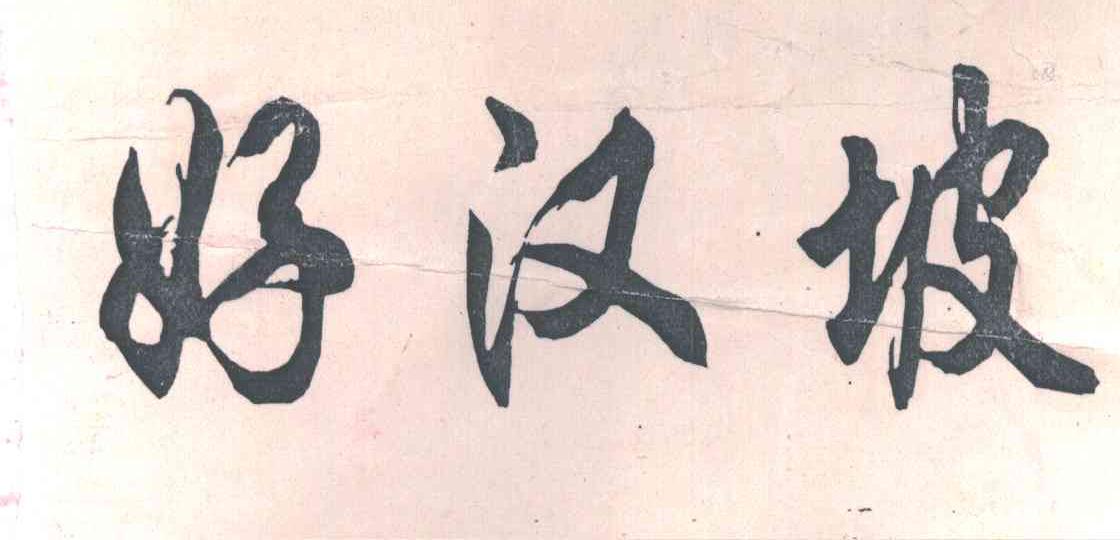 好汉坡